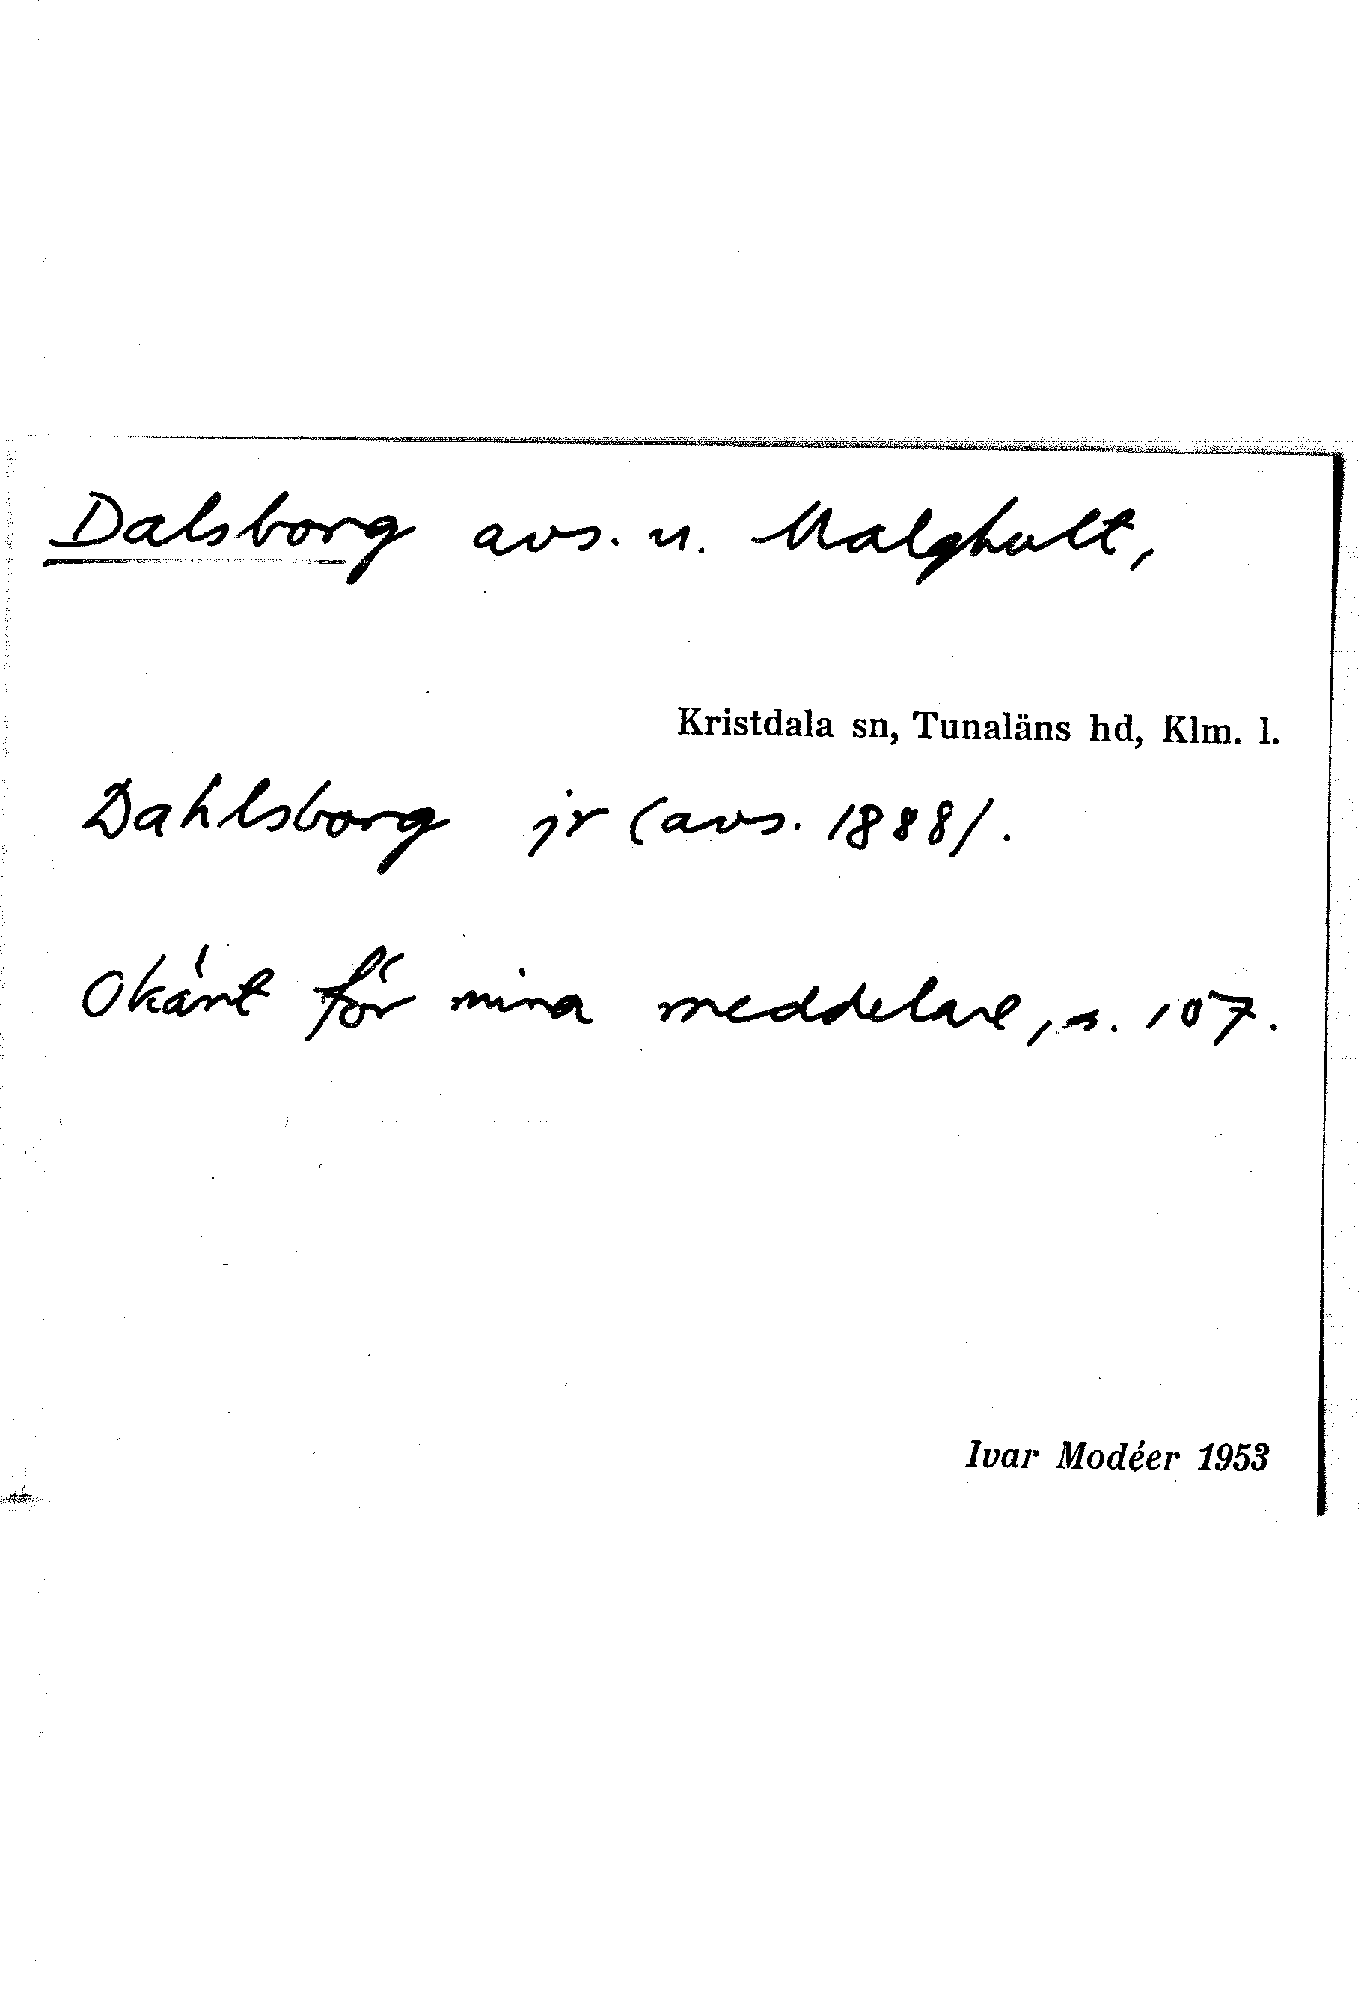 Dalsborg avs. u. Malghult,
Kristdala sn, Tunaläns hd, Klm. l.
Dahlsborg jr (avs. 1888).
Okänt för mina meddelare, s. 107.
Ivar Modéer 1953